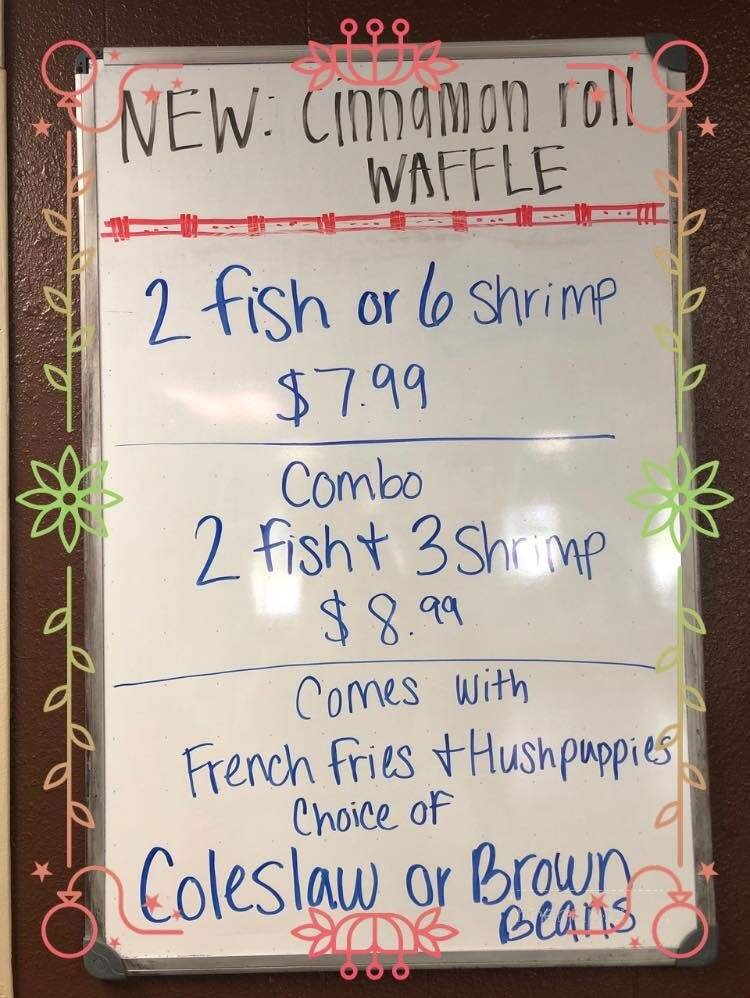 NEW: Cinnamon roll
WAFFLE
2 fish or 6 shrimp
$7.99
Combo
2 fish + 3 Shrimp
$8.99
Comes with
French fries + Hushpuppies
Choice of
Coleslaw or Brown
Beans